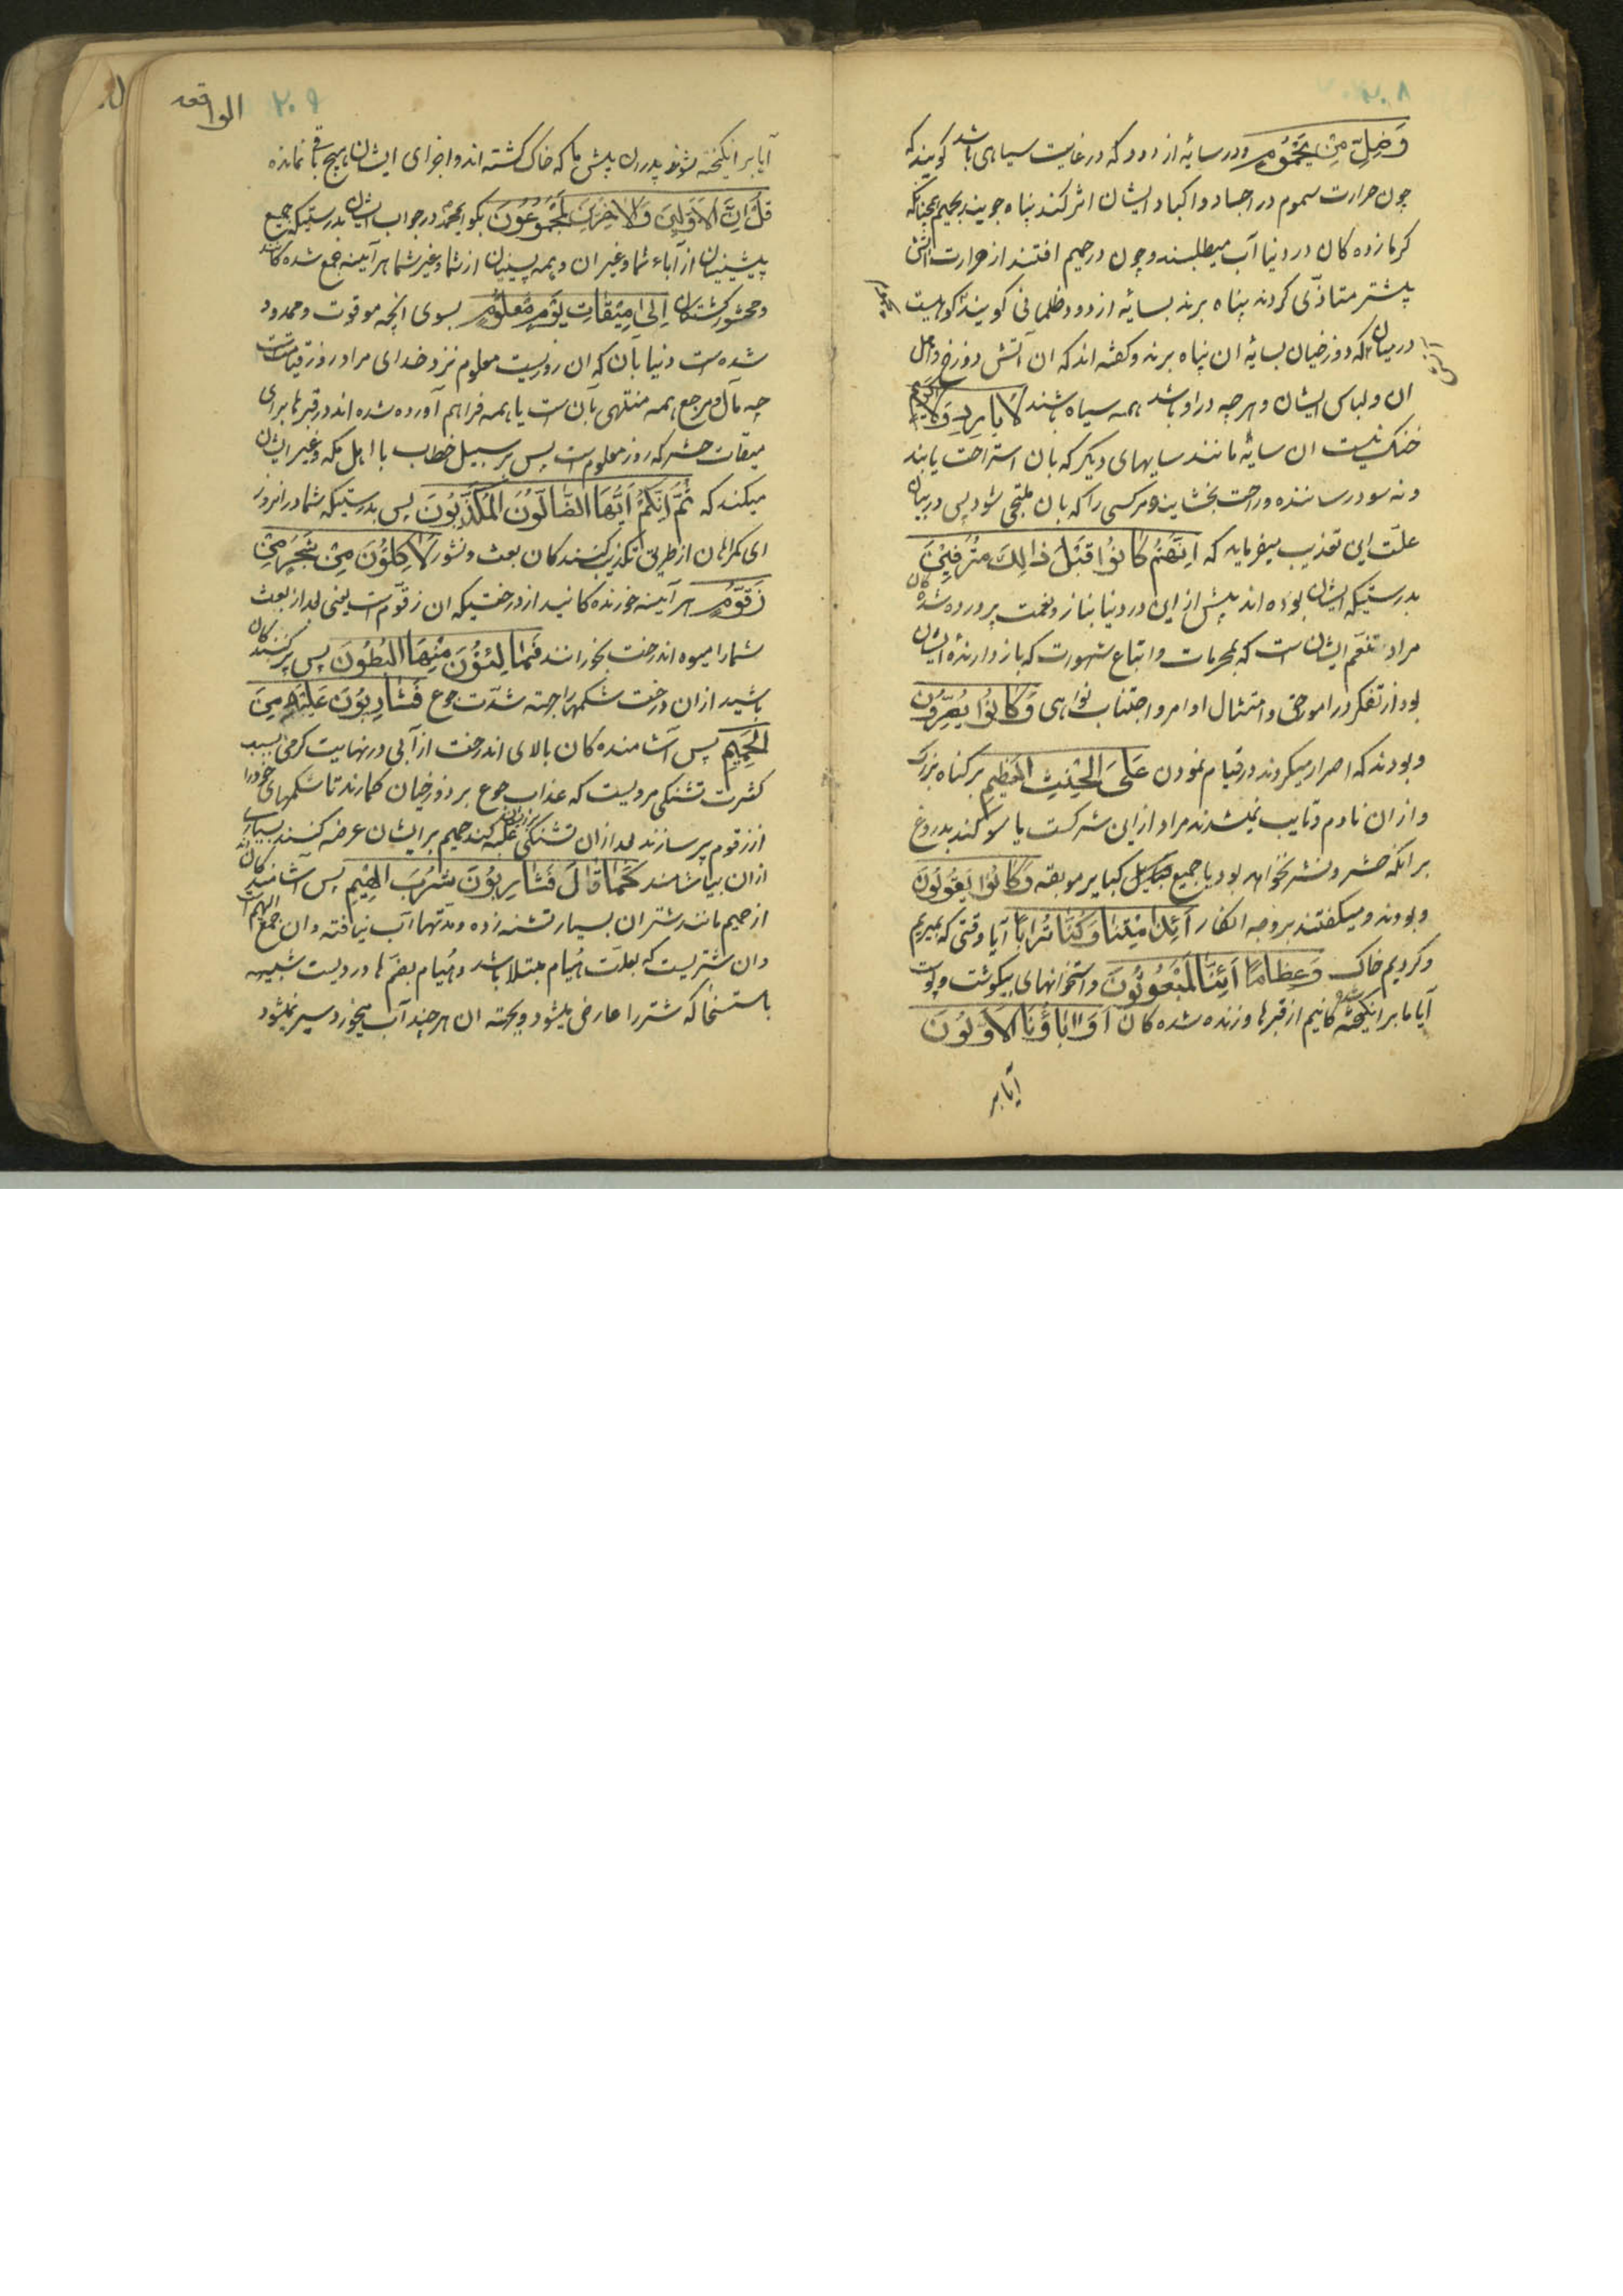 ۲۰۸
وَظِلٍّ مِنْ يَحْمُومٍ و در سایهٔ از دود که در غایت سیاهی باشد کویند که
چون حرارت سموم در اجساد و اکباد ایشان اثر کند پناه جویند بحمیم همچنانکه
کرمازده کان در دنیا آب میطلبند و چون در حمیم افتند از حرارت آتش
پیشتر متاذّی کردند پناه برند بسایهٔ از دود ظلمانی کویند کوهیست
در میان آنکه دوزخیان بسایهٔ ان پناه برند و کفته اند که ان آتش دوزخ و اهل
ان و لباس ایشان و هر چه در او باشد همه سیاه باشند لَا بَارِدٍ وَلَا كَرِيمٍ
خنک نیست ان سایهٔ مانند سایهای دیکر که بان استراحت یابند
و نه سود رساننده و راحت بخشاینده مر کسی را که بان ملتجی شود پس در بیان
علّت این تعذیب میفرماید که اِنَّهُمْ كَانُوا قَبْلَ ذَالِكَ مُتْرَفِينَ
بدرستیکه ایشان بوده اند پیش از این در دنیا بناز و نعمت پرورده شده کان
مراد تنعّم ایشان است که بمحرمات و اتباع شهورت که باز دارندهٔ ایشان
بود از تفکر در امور حق و امتثال اوامر و اجتناب نواهی وَكَانُوا يُصِرُّونَ
و بودند که اصرار میکردند در قیام نمودن عَلَى الْحِنْثِ الْعَظِيمِ بر کناه بزرک
و از ان نادم و تایب نمیشدند مراد از این شرکست یا سوکند بدروغ
بر انکه حشر و نشر نخواهد بود یا جمیع کبایر موبقه وَكَانُوا يَقُولُونَ
و بودند و میکفتند بروجه انکار اَئِذَا مِتْنَا وَكُنَّا تُرَابًا آیا وقتی که بمیریم
و کردیم خاک وَعِظَامًا اَئِنَّا لَمَبْعُوثُونَ و استخوانهای بیکوشت و پوست
آیا ما برانیکخته شده کانیم از قبرها و زنده شده کان اَوَاٰبَاؤُنَا الْاَوَّلُونَ
آیا بر
۲۰۹
الواقعه
آیا برانیکخته شوند پدران پیش ما که خاک کشته اند و اجزای ایشان هیچ باقی نمانده
قُلْ اِنَّ الْاَوَّلِينَ وَالْاٰخِرِينَ لَمَجْمُوعُونَ بکو ایمحمّد در جواب ایشان بدرستیکه جمیع
پیشینیان از آباء شما و غیر ان و همه پسینیان از شما و غیر شما هر آینه جمع شده کانند
و محشور کشتکان اِلٰى مِيقَاتِ يَوْمٍ مَعْلُومٍ بسوی انچه موقوت و محدود
شده است دنیا بآن که ان روزیست معلوم نزد خدای مراد روز قیامتست
چه مآل و مرجع همه منتهی بآن است یا همه فراهم آورده شده اند در قبرها برای
میقات حشر که روز معلوم است پس بر سبیل خطاب با اهل مکه و غیر ایشان
میکند که ثُمَّ اِنَّكُمْ اَيُّهَا الضَّالُّونَ الْمُكَذِّبُونَ پس بدرستیکه شما در انروز
ای کمراهان از طریق تکذیب کنندکان بعث و نشور لَاٰكِلُونَ مِنْ شَجَرٍ مِنْ
زَقُّومٍ هر آینه خورنده کانید از درختیکه ان زقّوم است یعنی بعد از بعث
شما را میوه اندرخت بخورانند فَمَالِئُونَ مِنْهَا الْبُطُونَ پس پر کنندکان
باشید از ان درخت شکمها را جهته شدّت جوع فَشَارِبُونَ عَلَيْهِ مِنَ
الْحَمِيمِ پس آشامنده کان بالای اندرخت از آبی در نهایت کرمی بسبب
کثرت تشنکی مرویست که عذاب جوع بر دوزخیان کمارند تا شکمهای خود را
از زقوم پر سازند بعد از ان تشنکی غلبه کند حمیم بر ایشان عرضه کنند بسیاری
از ان بیاشامند كَمَا قَالَ فَشَارِبُونَ شُرْبَ الْهِيمِ پس آشامنده کانند
از حمیم مانند شتران بسیار تشنه زده و مدتها آب نیافته و ان جمع اهیم است
و ان شتریست که بعلّت هُیام مبتلا باشد و هُیام بضمّ ها دردیست شبیه
باستسقا که شتر را عارض میشود و بجهته ان هر چند آب میخورد سیر نمیشود